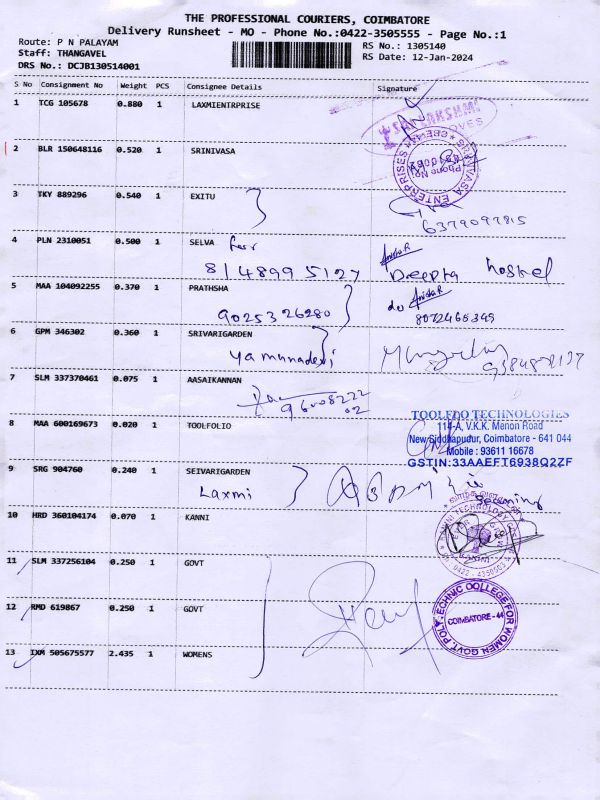 THE PROFESSIONAL COURIERS, COIMBATORE
Delivery Runsheet - MO - Phone No.:0422-3505555 - Page No.:1
Route: P N PALAYAM
Staff: THANGAVEL
DRS No.: DCJB130514001
RS No.: 1305140
RS Date: 12-Jan-2024
S No Consignment No Weight PCS Consignee Details Signature
1 TCG 105678 0.880 1 LAXMIENTRPRISE
2 BLR 150648116 0.520 1 SRINIVASA
SRINIVASA ENTERPRISES
Phone No
3 TKY 889296 0.540 1 EXITU
6379097815
4 PLN 2310051 0.500 1 SELVA
8148995127 Deepta hostel
5 MAA 104092255 0.370 1 PRATHSHA
9025326280 8072465349
6 GPM 346302 0.360 1 SRIVARIGARDEN
yamunadevi
7 SLM 337370461 0.075 1 AASAIKANNAN
8 MAA 600169673 0.020 1 TOOLFOLIO
TOOLFDO TECHNOLOGIES
114-A, V.K.K. Menon Road
New Siddhapudur, Coimbatore - 641 044
Mobile : 93611 16678
GSTIN:33AAEFT6938Q2ZF
9 SRG 904760 0.240 1 SEIVARIGARDEN
Laxmi
10 HRD 360104174 0.070 1 KANNI
11 SLM 337256104 0.250 1 GOVT
12 RMD 619867 0.250 1 GOVT
GOVT. POLYTECHNIC COLLEGE FOR WOMEN
COIMBATORE - 44
13 IXM 505675577 2.435 1 WOMENS